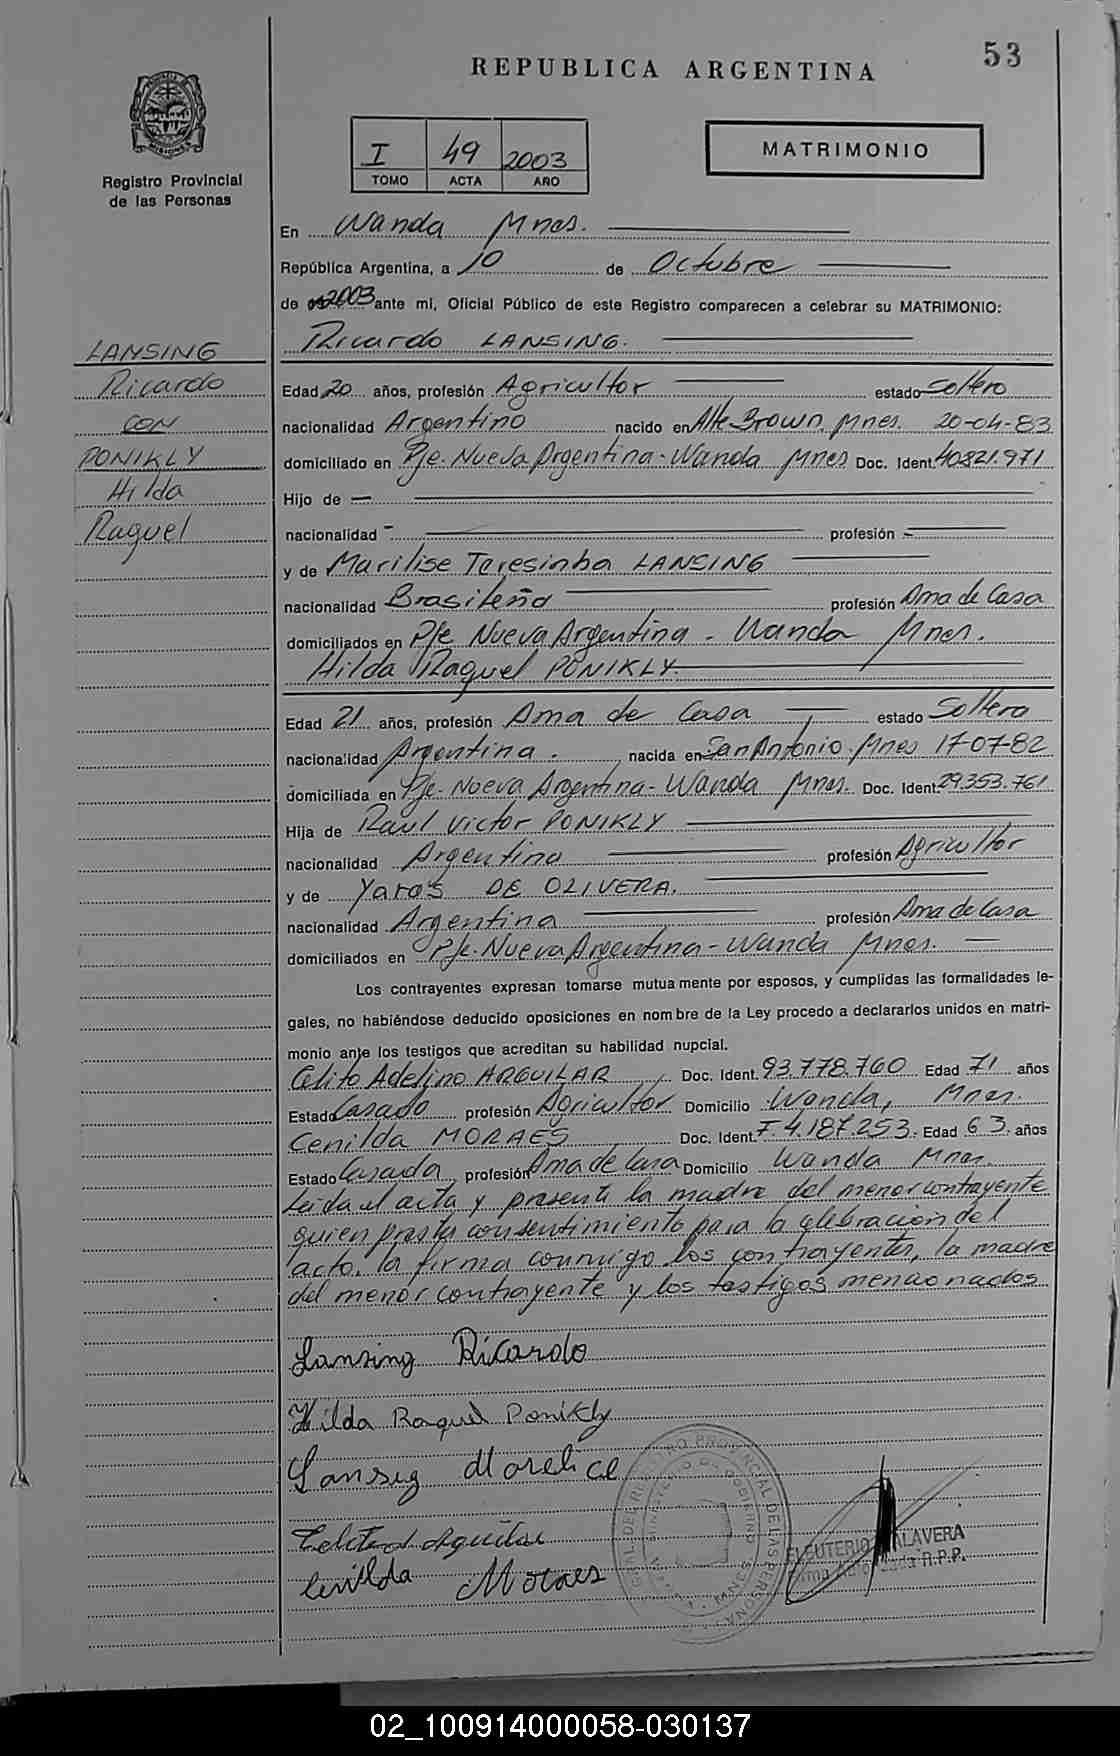 53
REPUBLICA ARGENTINA
I 49 2003
TOMO ACTA AÑO
MATRIMONIO
Registro Provincial
de las Personas
En Wanda Mnes.
República Argentina, a 10 de Octubre
de 2003 ante mi, Oficial Público de este Registro comparecen a celebrar su MATRIMONIO:
Ricardo LANSING.
LANSING
Ricardo
CON
PONIKLY
Hilda
Raquel
Edad 20 años, profesión Agricultor estado Soltero
nacionalidad Argentino nacido en Alte. Brown. Mnes. 20-04-83
domiciliado en Pje. Nueva Argentina - Wanda Mnes Doc. Ident. 40821.971
Hijo de —
nacionalidad - profesión -
y de Marilise Teresinha LANSING
nacionalidad Brasileña profesión Ama de Casa
domiciliados en Pje Nueva Argentina - Wanda Mnes.
Hilda Raquel PONIKLY.
Edad 21 años, profesión Ama de Casa estado Soltera
nacionalidad Argentina. nacida en San Antonio. Mnes 17-07-82
domiciliada en Pje. Nueva Argentina - Wanda Mnes. Doc. Ident. 29.353.761
Hija de Raul Victor PONIKLY
nacionalidad Argentina profesión Agricultor
y de Yaras DE OLIVERA.
nacionalidad Argentina profesión Ama de Casa
domiciliados en Pje. Nueva Argentina - Wanda Mnes.
Los contrayentes expresan tomarse mutuamente por esposos, y cumplidas las formalidades le-
gales, no habiéndose deducido oposiciones en nombre de la Ley procedo a declararlos unidos en matri-
monio ante los testigos que acreditan su habilidad nupcial.
Celito Adelino ARGUILAR Doc. Ident. 93.778.760 Edad 71 años
Estado Casado profesión Agricultor Domicilio Wanda, Mnes.
Cenilda MORAES Doc. Ident. F. 4.187.253. Edad 63. años
Estado Casada profesión Ama de Casa Domicilio Wanda Mnes.
Leida el acta y presente la madre del menor contrayente
quien presta consentimiento para la celebración del
acto. la firma conmigo los contrayentes, la madre
del menor contrayente y los testigos mencionados
Lansing Ricardo
Hilda Raquel Ponikly
Lansig Marelice
Aguilar
Moraes
REGISTRO PROVINCIAL DE LAS PERSONAS
MINISTERIO DE GOBIERNO
ELEUTERIO TALAVERA
Firma Autorizada R.P.P.
02_100914000058-030137